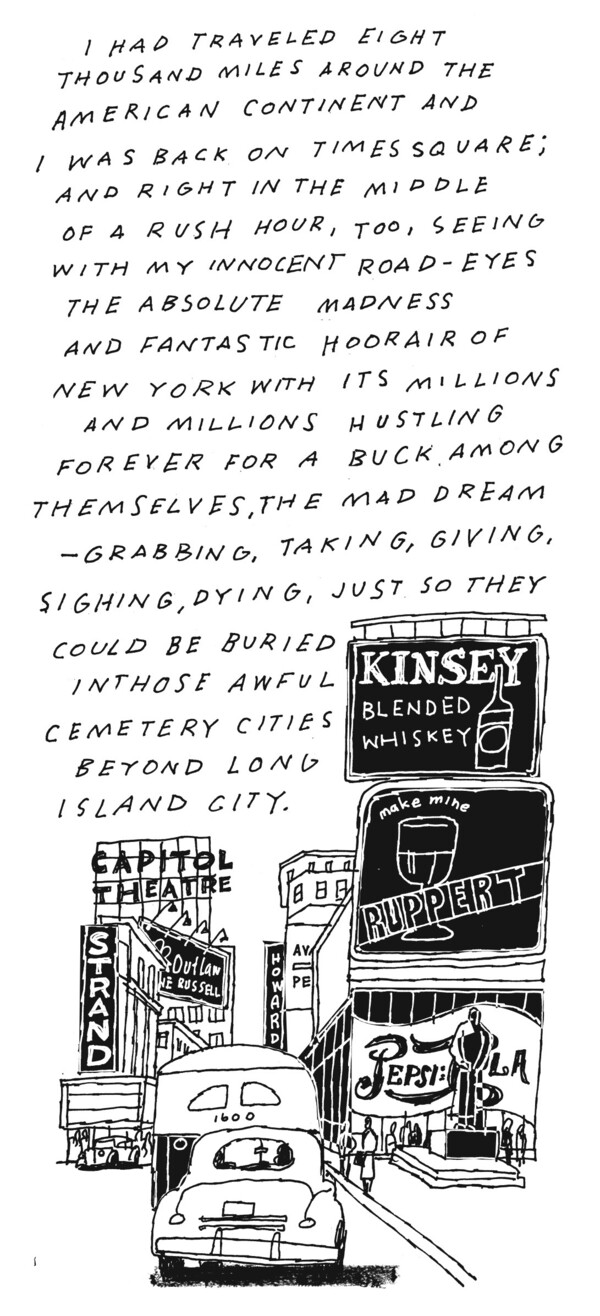 I HAD TRAVELED EIGHT
THOUSAND MILES AROUND THE
AMERICAN CONTINENT AND
I WAS BACK ON TIMES SQUARE;
AND RIGHT IN THE MIDDLE
OF A RUSH HOUR, TOO, SEEING
WITH MY INNOCENT ROAD-EYES
THE ABSOLUTE MADNESS
AND FANTASTIC HOORAIR OF
NEW YORK WITH ITS MILLIONS
AND MILLIONS HUSTLING
FOREVER FOR A BUCK AMONG
THEMSELVES, THE MAD DREAM
-GRABBING, TAKING, GIVING,
SIGHING, DYING, JUST SO THEY
COULD BE BURIED
IN THOSE AWFUL
CEMETERY CITIES
BEYOND LONG
ISLAND CITY.
KINSEY
BLENDED
WHISKEY
make mine
RUPPERT
CAPITOL
THEATRE
STRAND
Outlaw
NE RUSSELL
HOWARD
AV
PE
PEPSI:
LA
1600